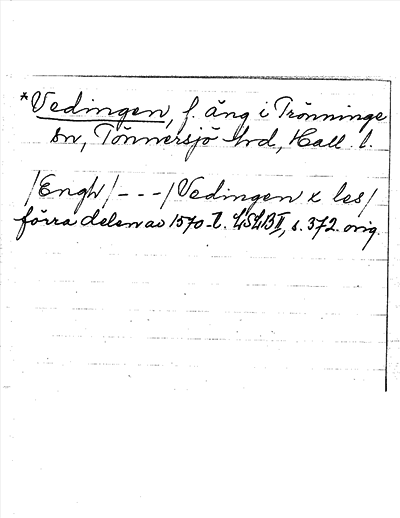 *Vedingen, f. äng i Trönninge
sn, Tönnersjö hd, Hall. l.
/Engh/---/Vedingen x les/
förra delen av 1570-t. LSLB II, s. 372. orig.